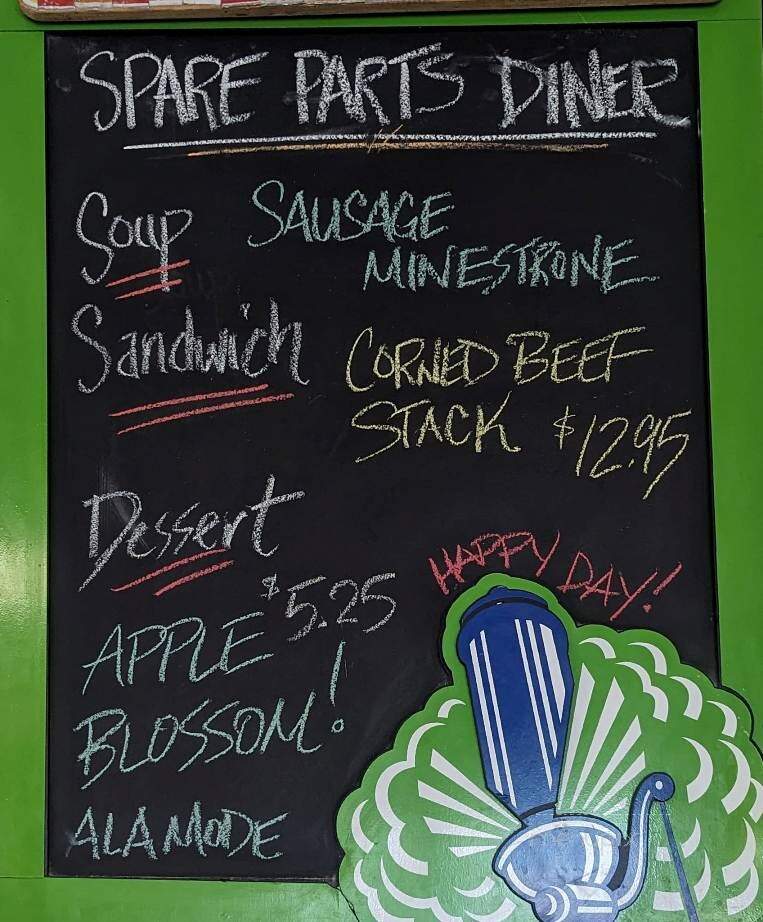 SPARE PARTS DINER
Soup SAUSAGE
MINESTRONE
Sandwich CORNED BEEF
STACK $12.95
Dessert
$5.25
HAPPY DAY!
APPLE
BLOSSOM!
ALA MODE